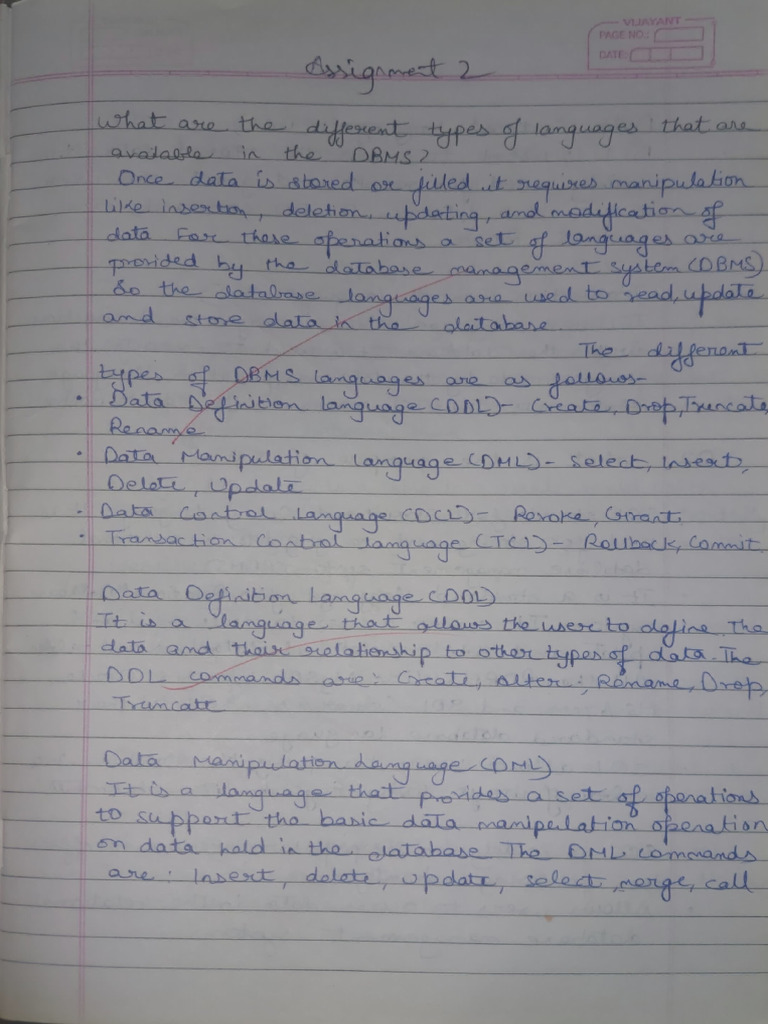 VIJAYANT
PAGE NO.:
DATE:
Assignment 2
What are the different types of languages that are
available in the DBMS?
Once data is stored or filled it requires manipulation
like insertion, deletion, updating, and modification of
data For these operations a set of languages are
provided by the database management system (DBMS)
So the database languages are used to read, update
and store data in the database.
The different
types of DBMS languages are as follows-
• Data Definition language (DDL)- Create, Drop, Truncate,
Rename
• Data Manipulation Language (DML)- Select, Insert,
Delete, Update
• Data Control Language (DCL)- Revoke, Grant,
• Transaction Control language (TCL)- Rollback, Commit
Data Definition Language (DDL)
It is a language that allows the user to define the
data and their relationship to other types of data. The
DDL commands are: Create, Alter, Rename, Drop,
Truncate
Data Manipulation Language (DML)
It is a language that provides a set of operations
to support the basic data manipulation operation
on data held in the database The DML commands
are: Insert, delete, update, select, merge, call